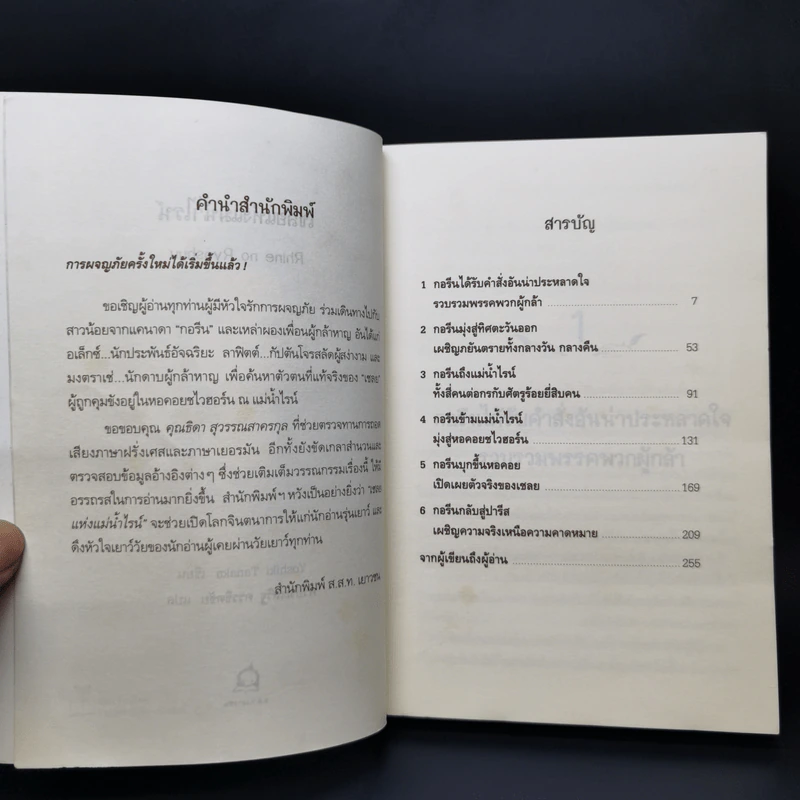 คำนำสำนักพิมพ์
การผจญภัยครั้งใหม่ได้เริ่มขึ้นแล้ว !
ขอเชิญผู้อ่านทุกท่านผู้มีหัวใจรักการผจญภัย ร่วมเดินทางไปกับ
สาวน้อยจากแคนาดา “กอรีน” และเหล่าผองเพื่อนผู้กล้าหาญ อันได้แก่
อเล็กซ์...นักประพันธ์อัจฉริยะ ลาฟิตต์...กัปตันโจรสลัดผู้สง่างาม และ
มงตราเช่...นักดาบผู้กล้าหาญ เพื่อค้นหาตัวตนที่แท้จริงของ “เชลย”
ผู้ถูกคุมขังอยู่ในหอคอยชไวฮอร์น ณ แม่น้ำไรน์
ขอขอบคุณ คุณธิดา สุวรรณสาครกุล ที่ช่วยตรวจทานการถอด
เสียงภาษาฝรั่งเศสและภาษาเยอรมัน อีกทั้งยังขัดเกลาสำนวนและ
ตรวจสอบข้อมูลอ้างอิงต่างๆ ซึ่งช่วยเติมเต็มวรรณกรรมเรื่องนี้ ให้มี
อรรถรสในการอ่านมากยิ่งขึ้น สำนักพิมพ์ฯ หวังเป็นอย่างยิ่งว่า “เชลย
แห่งแม่น้ำไรน์” จะช่วยเปิดโลกจินตนาการให้แก่นักอ่านรุ่นเยาว์ และ
ดึงหัวใจเยาว์วัยของนักอ่านผู้เคยผ่านวัยเยาว์ทุกท่าน
สำนักพิมพ์ ส.ส.ท. เยาวชน
สารบัญ
1 กอรีนได้รับคำสั่งอันน่าประหลาดใจ
รวบรวมพรรคพวกผู้กล้า 7
2 กอรีนมุ่งสู่ทิศตะวันออก
เผชิญภยันตรายทั้งกลางวัน กลางคืน 53
3 กอรีนถึงแม่น้ำไรน์
ทั้งสี่คนต่อกรกับศัตรูร้อยยี่สิบคน 91
4 กอรีนข้ามแม่น้ำไรน์
มุ่งสู่หอคอยชไวฮอร์น 131
5 กอรีนบุกขึ้นหอคอย
เปิดเผยตัวจริงของเชลย 169
6 กอรีนกลับสู่ปารีส
เผชิญความจริงเหนือความคาดหมาย 209
จากผู้เขียนถึงผู้อ่าน 255